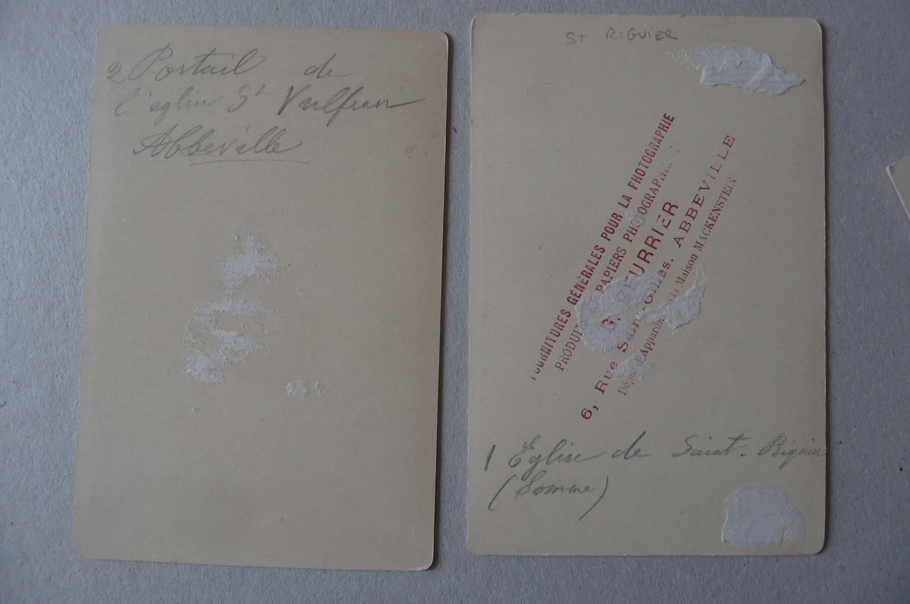 2 Portail de
l'église St Vulfran
Abbeville
ST RIQUIER
FOURNITURES GÉNÉRALES POUR LA PHOTOGRAPHIE
PAPIERS PHOTOGRAPHIE
6, Rue Saint-Gilles, ABBEVILLE
Maison MACKENSTEIN
1 Eglise de Saint-Riquier
(Somme)